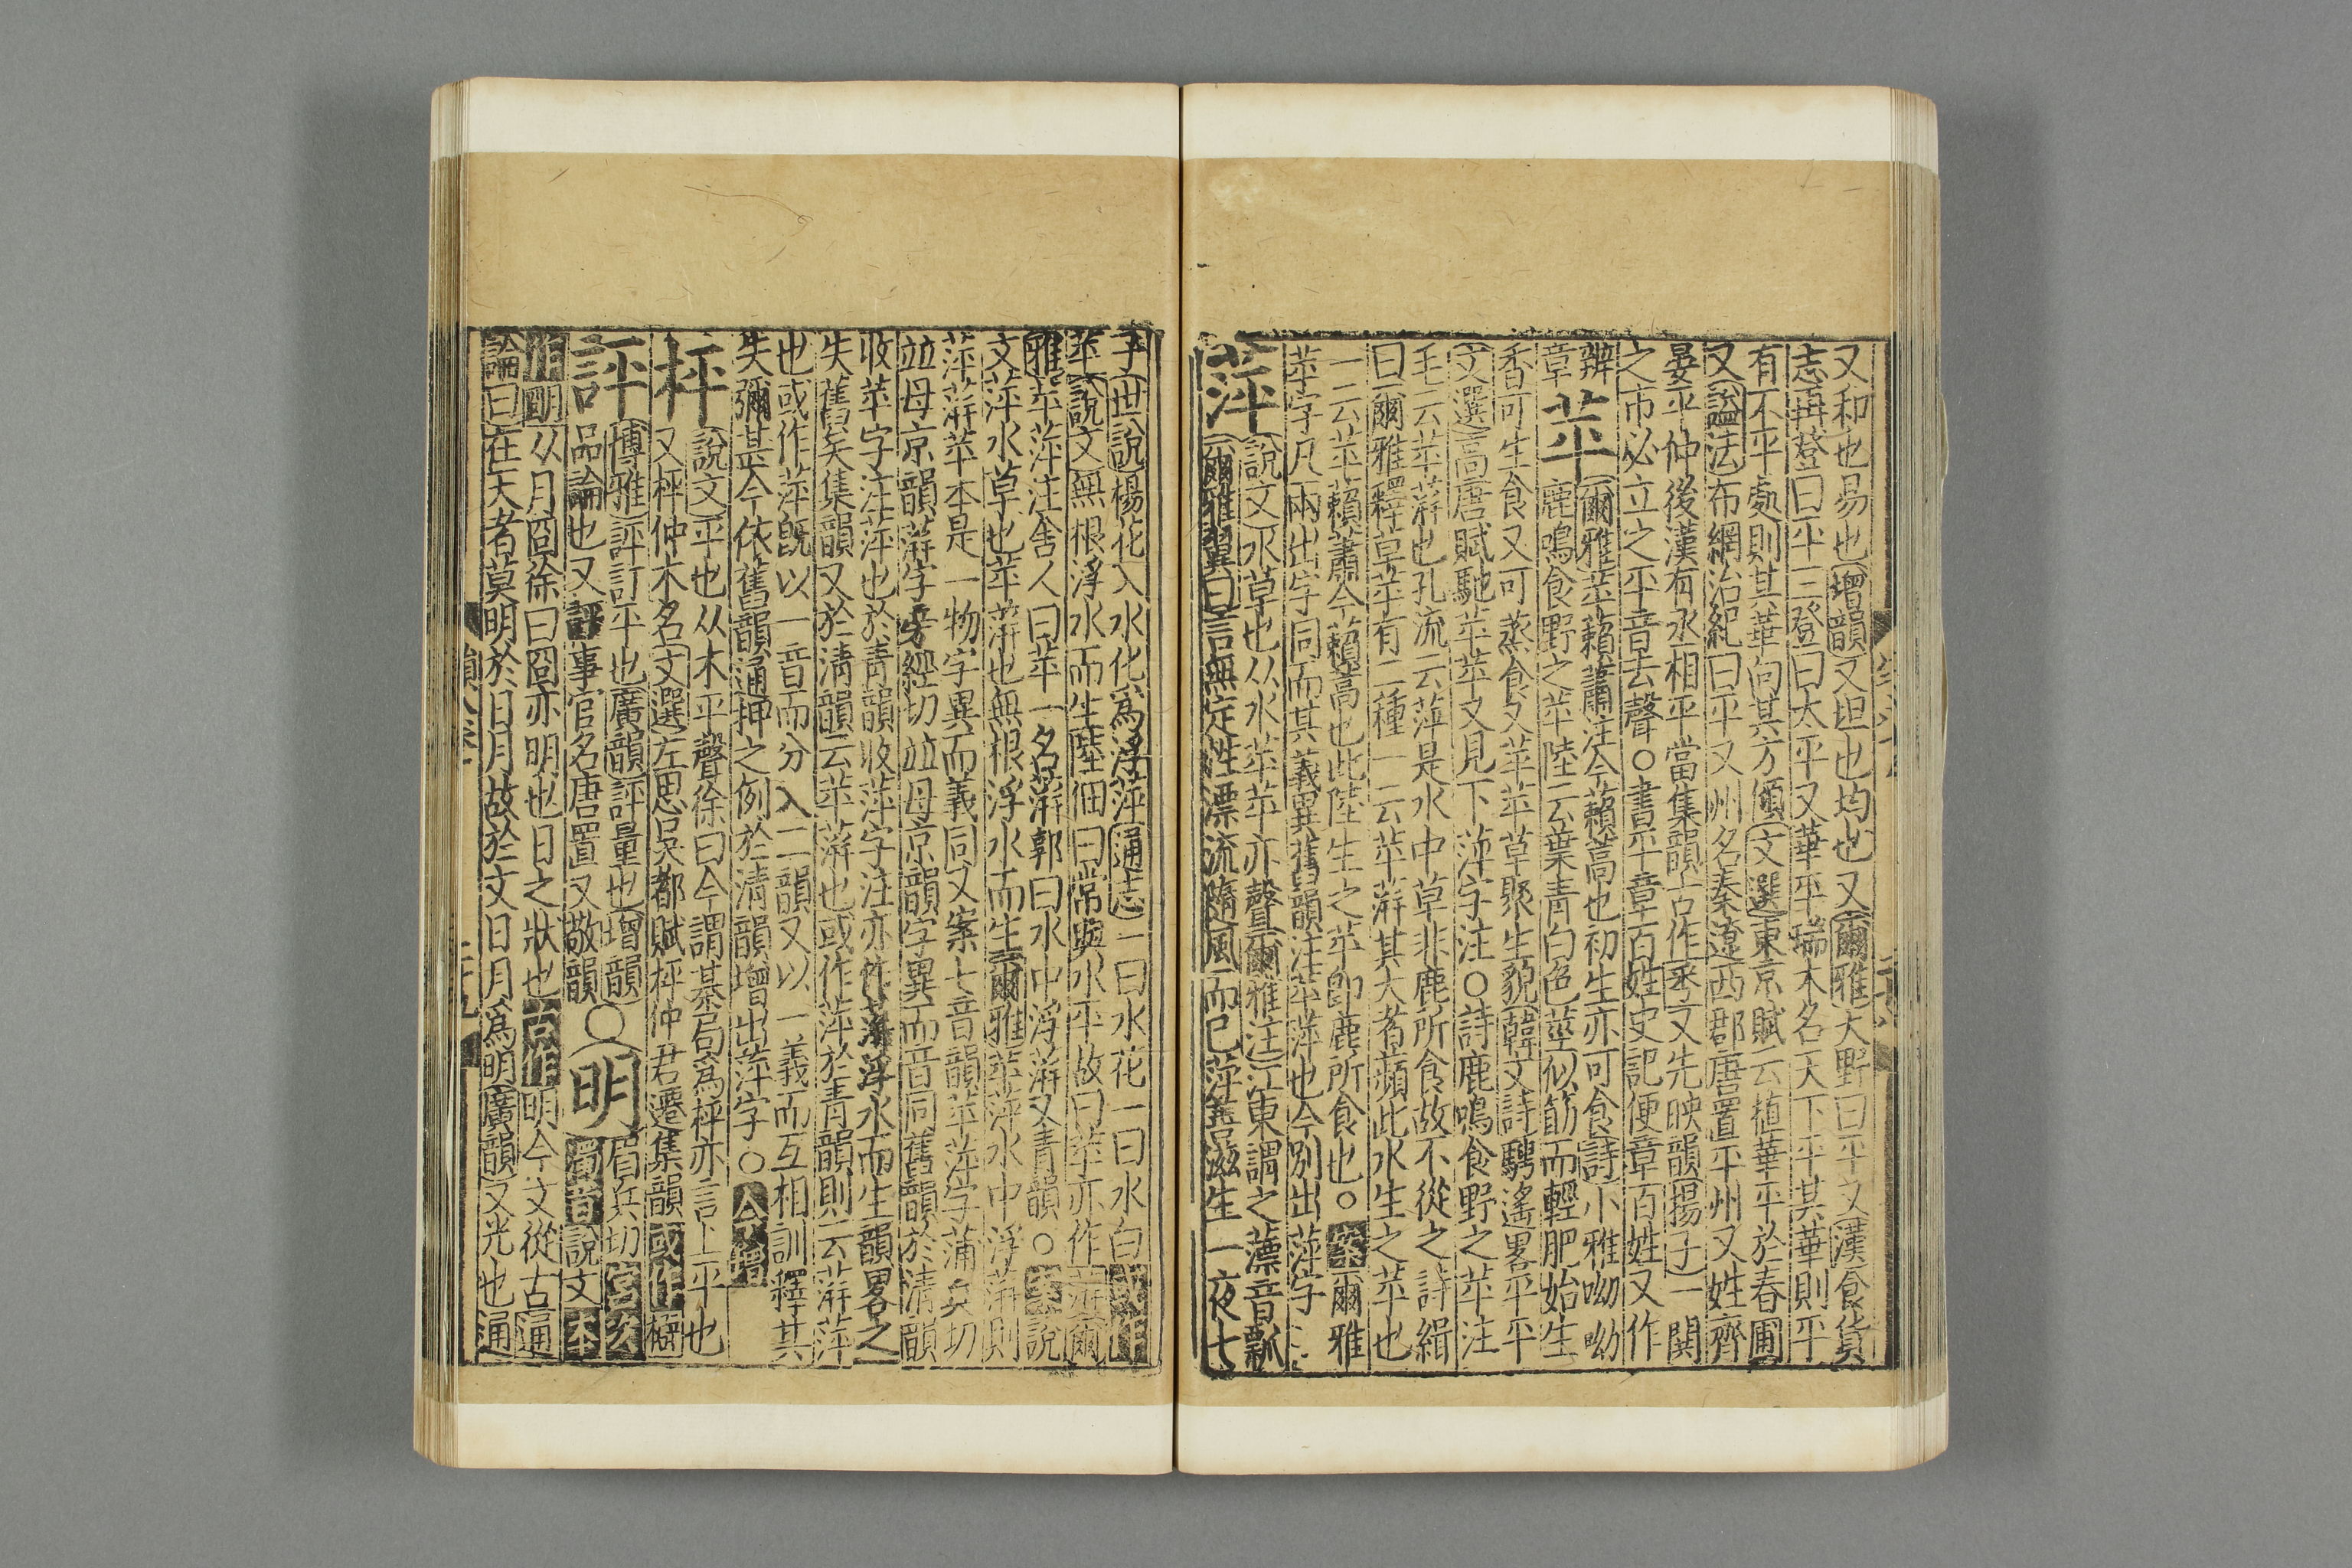 又和也易也增韻又坦也均也又爾雅大野曰平又漢食貨
志再登曰平三登曰大平又華平瑞木名天下平其華則平
有不平處則其華向其方傾文選東京賦云植華平於春圃
又諡法布綱治紀曰平又州名秦遼西郡唐置平州又姓齊
晏平仲後漢有丞相平當集韻古作𠀤又先映韻揚子一閧
之市必立之平音去聲○書平章百姓史記便章百姓又作
辨苹爾雅苹藾蕭注今藾蒿也初生亦可食詩小雅呦呦
章鹿鳴食野之苹陸云葉青白色莖似筯而輕肥始生
香可生食又可蒸食又苹苹草聚生貌韓文詩騁遙略平平
文選高唐賦馳苹苹又見下萍字注○詩鹿鳴食野之苹注
毛云苹蓱也孔流云萍是水中草非鹿所食故不從之詩緝
曰爾雅釋草苹有二種一云苹蓱其大者蘋此水生之苹也
一云苹藾蕭今藾蒿也此陸生之苹即鹿所食也○案爾雅
苹字凡兩出字同而其義異舊韻注苹萍也今別出萍字
萍說文水草也从水苹苹亦聲爾雅注江東謂之薸音瓢
爾雅翼曰言無定性漂流隨風而已萍善滋生一夜七
子世說楊花入水化爲浮萍通志一曰水花一曰水白或作
苹說文無根浮水而生陸佃曰常與水平故曰苹亦作蓱爾
雅苹萍注舍人曰苹一名蓱郭曰水中浮蓱又青韻○案說
文萍水草也苹蓱也無根浮水而生爾雅苹萍水中浮蓱則
萍蓱苹本是一物字異而義同又案七音韻苹萍字蒲兵切
並母京韻蓱字旁經切並母京韻字異而音同舊韻於清韻
收苹字注萍也於青韻收萍字注亦作蓱浮水而生韻畧之
失舊矣集韻又於清韻云苹蓱也或作萍於青韻則云蓱萍
也或作萍旣以一音而分入二韻又以一義而互相訓釋其
失彌甚今依舊韻通押之例於清韻增出萍字○今增
枰說文平也从木平聲徐曰今謂棊局爲枰亦言上平也
又枰仲木名文選左思吳都賦枰仲君遷集韻或作榒
評博雅評訂平也廣韻評量也增韻○明眉兵切宮次
品論也又評事官名唐置又敬韻濁音說文本
作朙从月囧徐曰囧亦明也日之狀也古作明今文從古通
論曰在天者莫明於日月故於文日月爲明廣韻又光也通